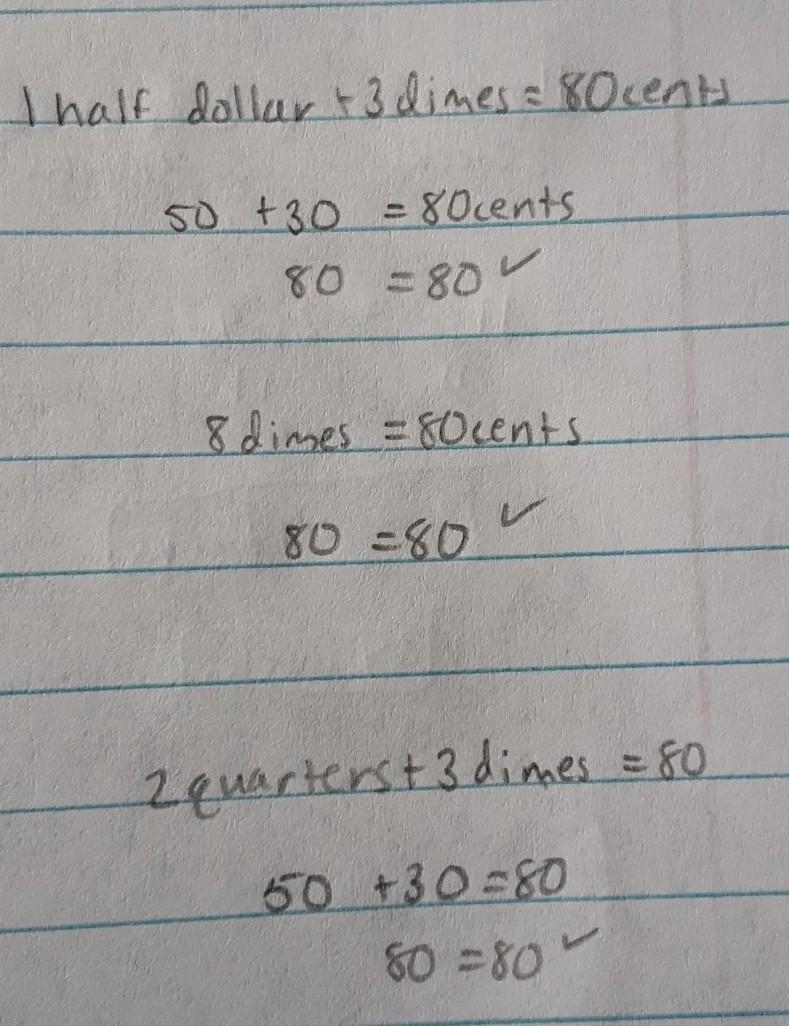 1 half dollar + 3 dimes = 80 cents
50 + 30 = 80 cents
80 = 80 ✓
8 dimes = 80 cents
80 = 80 ✓
2 quarters + 3 dimes = 80
50 + 30 = 80
80 = 80 ✓